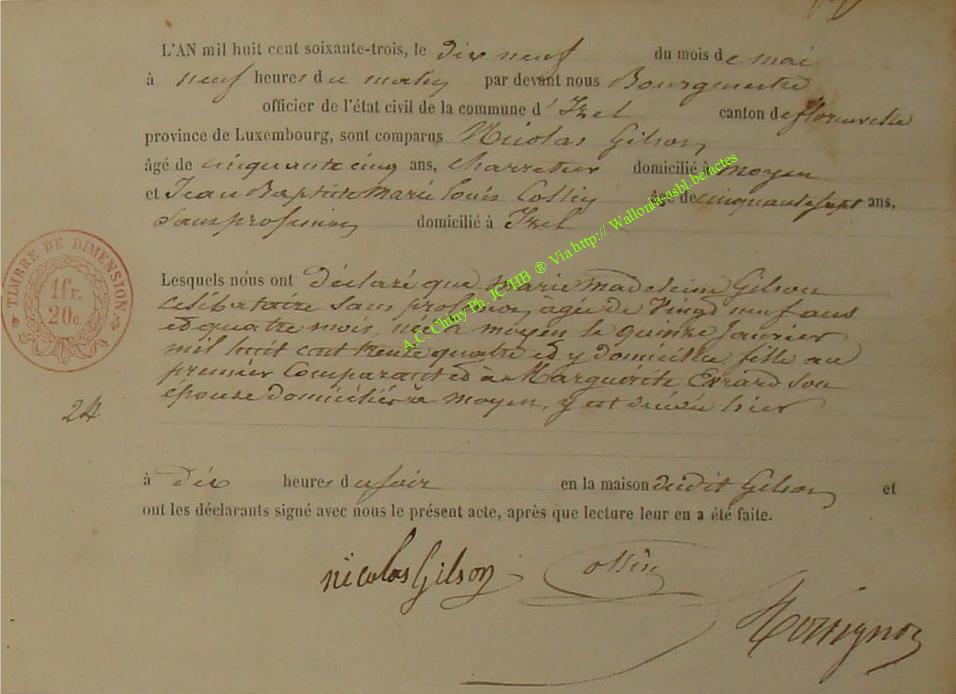 L'AN mil huit cent soixante-trois, le dix neuf du mois de mai
à neuf heures du matin par devant nous Bourgmestre
officier de l'état civil de la commune d'Izel canton de florenville
province de Luxembourg, sont comparus Nicolas Gilson
âgé de cinquante cinq ans, charretier domicilié à moyen
et Jean Baptiste Marie Louis Collin âgé de cinquante sept ans,
Sans profession domicilié à Izel
Lesquels nous ont déclaré que Marie Madeleine Gilson
celibataire sans profession, agée de Vingt neuf ans
et quatre mois, née à moyen le quinze Janvier
mil huit cent trente quatre et y domiciliée fille au
premier Comparant et à Marguérite Evrard son
épouse domiciliés à moyen, y est décédée hier
24
à dix heures du soir en la maison dudit Gilson et
ont les déclarants signé avec nous le présent acte, après que lecture leur en a été faite.
nicolas Gilson
TIMBRE DE DIMENSION
1 fr.
20 c.
A.C. Chiny Ph JC/HB ® Via http:// Wallonia-asbl.be/actes